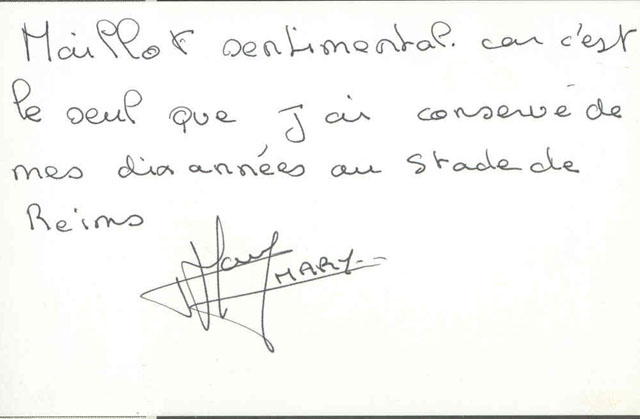 Maillot sentimental. car c'est
le seul que J'ai conservé de
mes dix années au Stade de
Reims
MARY